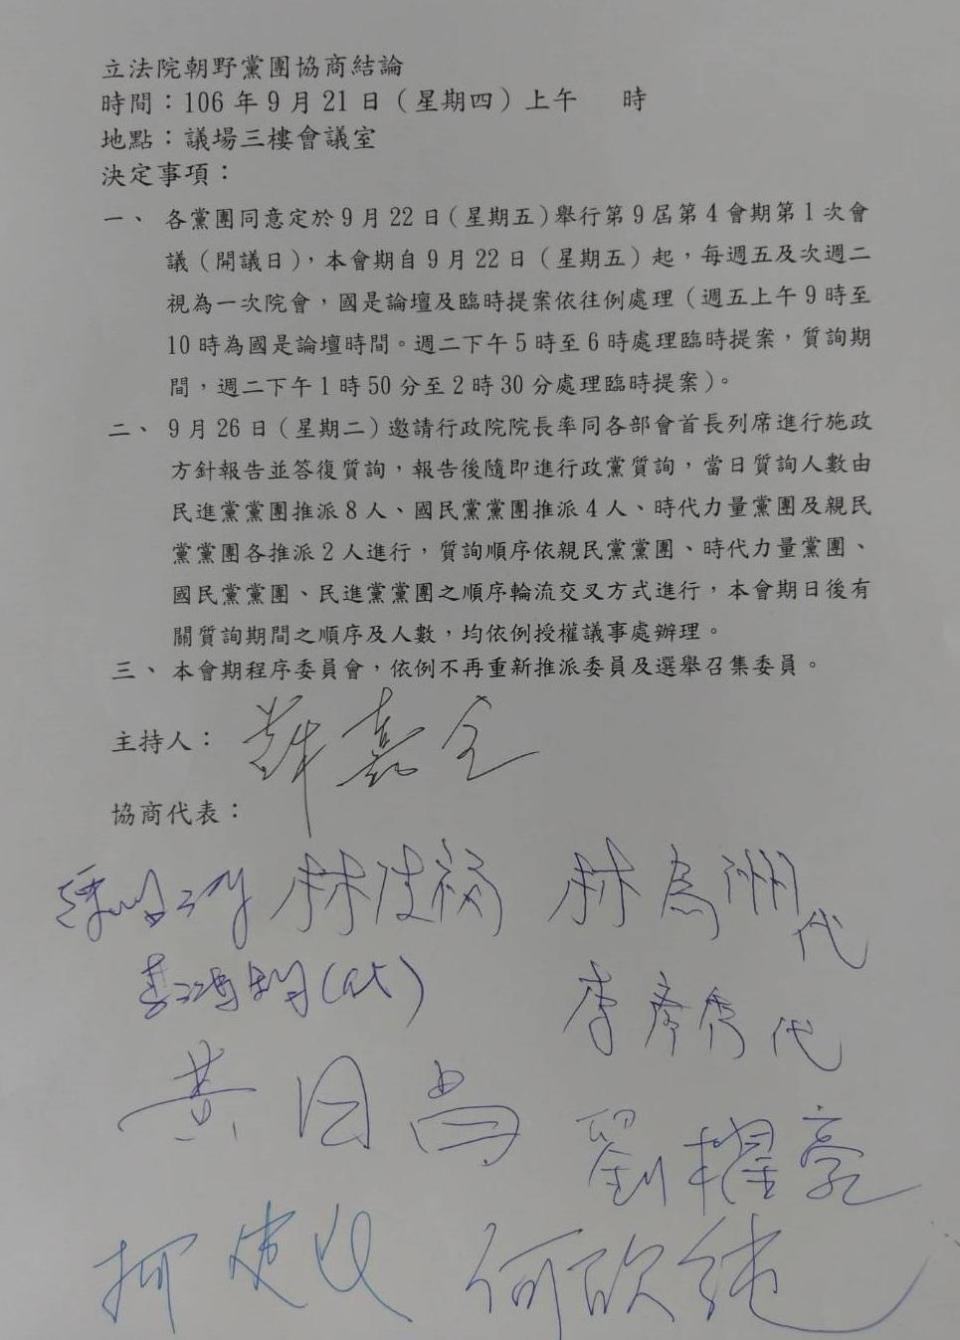 立法院朝野黨團協商結論
時間：106 年 9 月 21 日（星期四）上午　時
地點：議場三樓會議室
決定事項：
一、 各黨團同意定於 9 月 22 日（星期五）舉行第 9 屆第 4 會期第 1 次會
議（開議日），本會期自 9 月 22 日（星期五）起，每週五及次週二
視為一次院會，國是論壇及臨時提案依往例處理（週五上午 9 時至
10 時為國是論壇時間。週二下午 5 時至 6 時處理臨時提案，質詢期
間，週二下午 1 時 50 分至 2 時 30 分處理臨時提案）。
二、 9 月 26 日（星期二）邀請行政院院長率同各部會首長列席進行施政
方針報告並答復質詢，報告後隨即進行政黨質詢，當日質詢人數由
民進黨黨團推派 8 人、國民黨黨團推派 4 人、時代力量黨團及親民
黨黨團各推派 2 人進行，質詢順序依親民黨黨團、時代力量黨團、
國民黨黨團、民進黨黨團之順序輪流交叉方式進行，本會期日後有
關質詢期間之順序及人數，均依例授權議事處辦理。
三、 本會期程序委員會，依例不再重新推派委員及選舉召集委員。
主持人：蘇嘉全
協商代表：
林為洲代
李彥秀代
黃國昌
劉櫂豪
柯建銘 何欣純